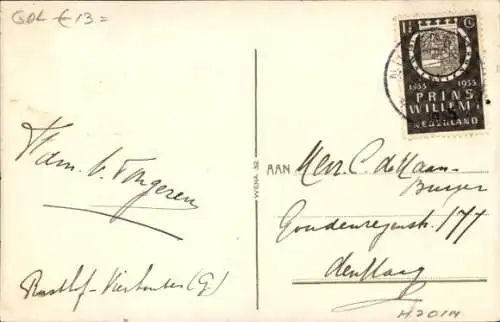 GOL € 13=
1½ Ct
1533 1933
PRINS
WILLEM I
NEDERLAND
Wdm. v. Tongeren
Rusthof-Vierhouten (G)
WENA 32
AAN
Herr C. de Haan-
Goudenregenstr. 177
den Haag
H2014